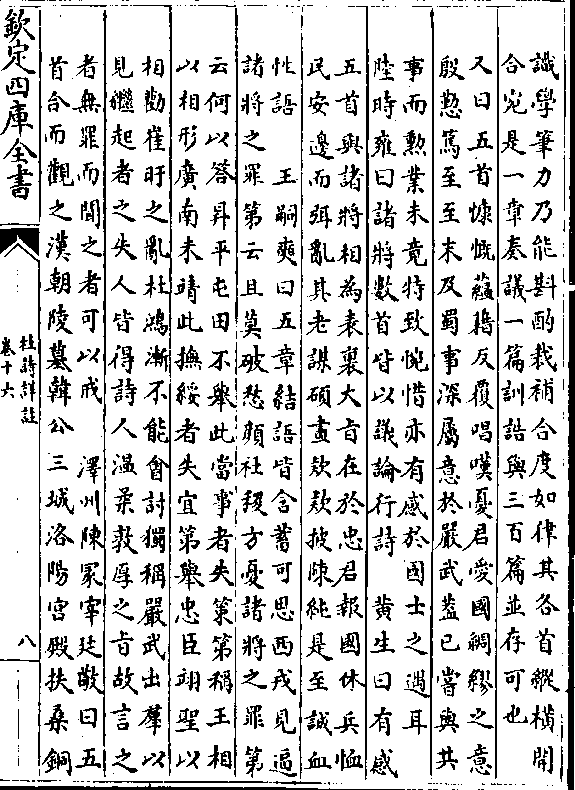 識學筆力乃能斟酌裁補合度如律其各首縱橫開
合宛是一章奏議一篇訓誥與三百篇並存可也
又曰五首慷慨蘊藉反覆唱嘆憂君愛國綢繆之意
殷懃篤至至末及蜀事深屬意於嚴武葢已嘗與其
事而勲業未竟特致惋惜亦有感於國士之遇耳
陸時雍曰諸將數首皆以議論行詩　黄生曰有感
五首與諸將相為表裏大旨在於忠君報國休兵恤
民安邊而弭亂其老謀碩畫欵欵披陳純是至誠血
性語　王嗣奭曰五章結語皆含蓄可思西戎見逼
諸將之罪第云且莫破愁顔社稷方憂諸將之罪第
云何以答昇平屯田不舉此當事者失策第稱王相
以相形廣南未靖此撫綏者失宜第舉忠臣翊聖以
相勸崔旰之亂杜鴻漸不能會討獨稱嚴武出羣以
見繼起者之失人皆得詩人温柔敦厚之旨故言之
者無罪而聞之者可以戒　澤州陳冢宰廷敬曰五
首合而觀之漢朝陵墓韓公三城洛陽宫殿扶桑銅
欽定四庫全書
杜詩詳註
卷十六
八